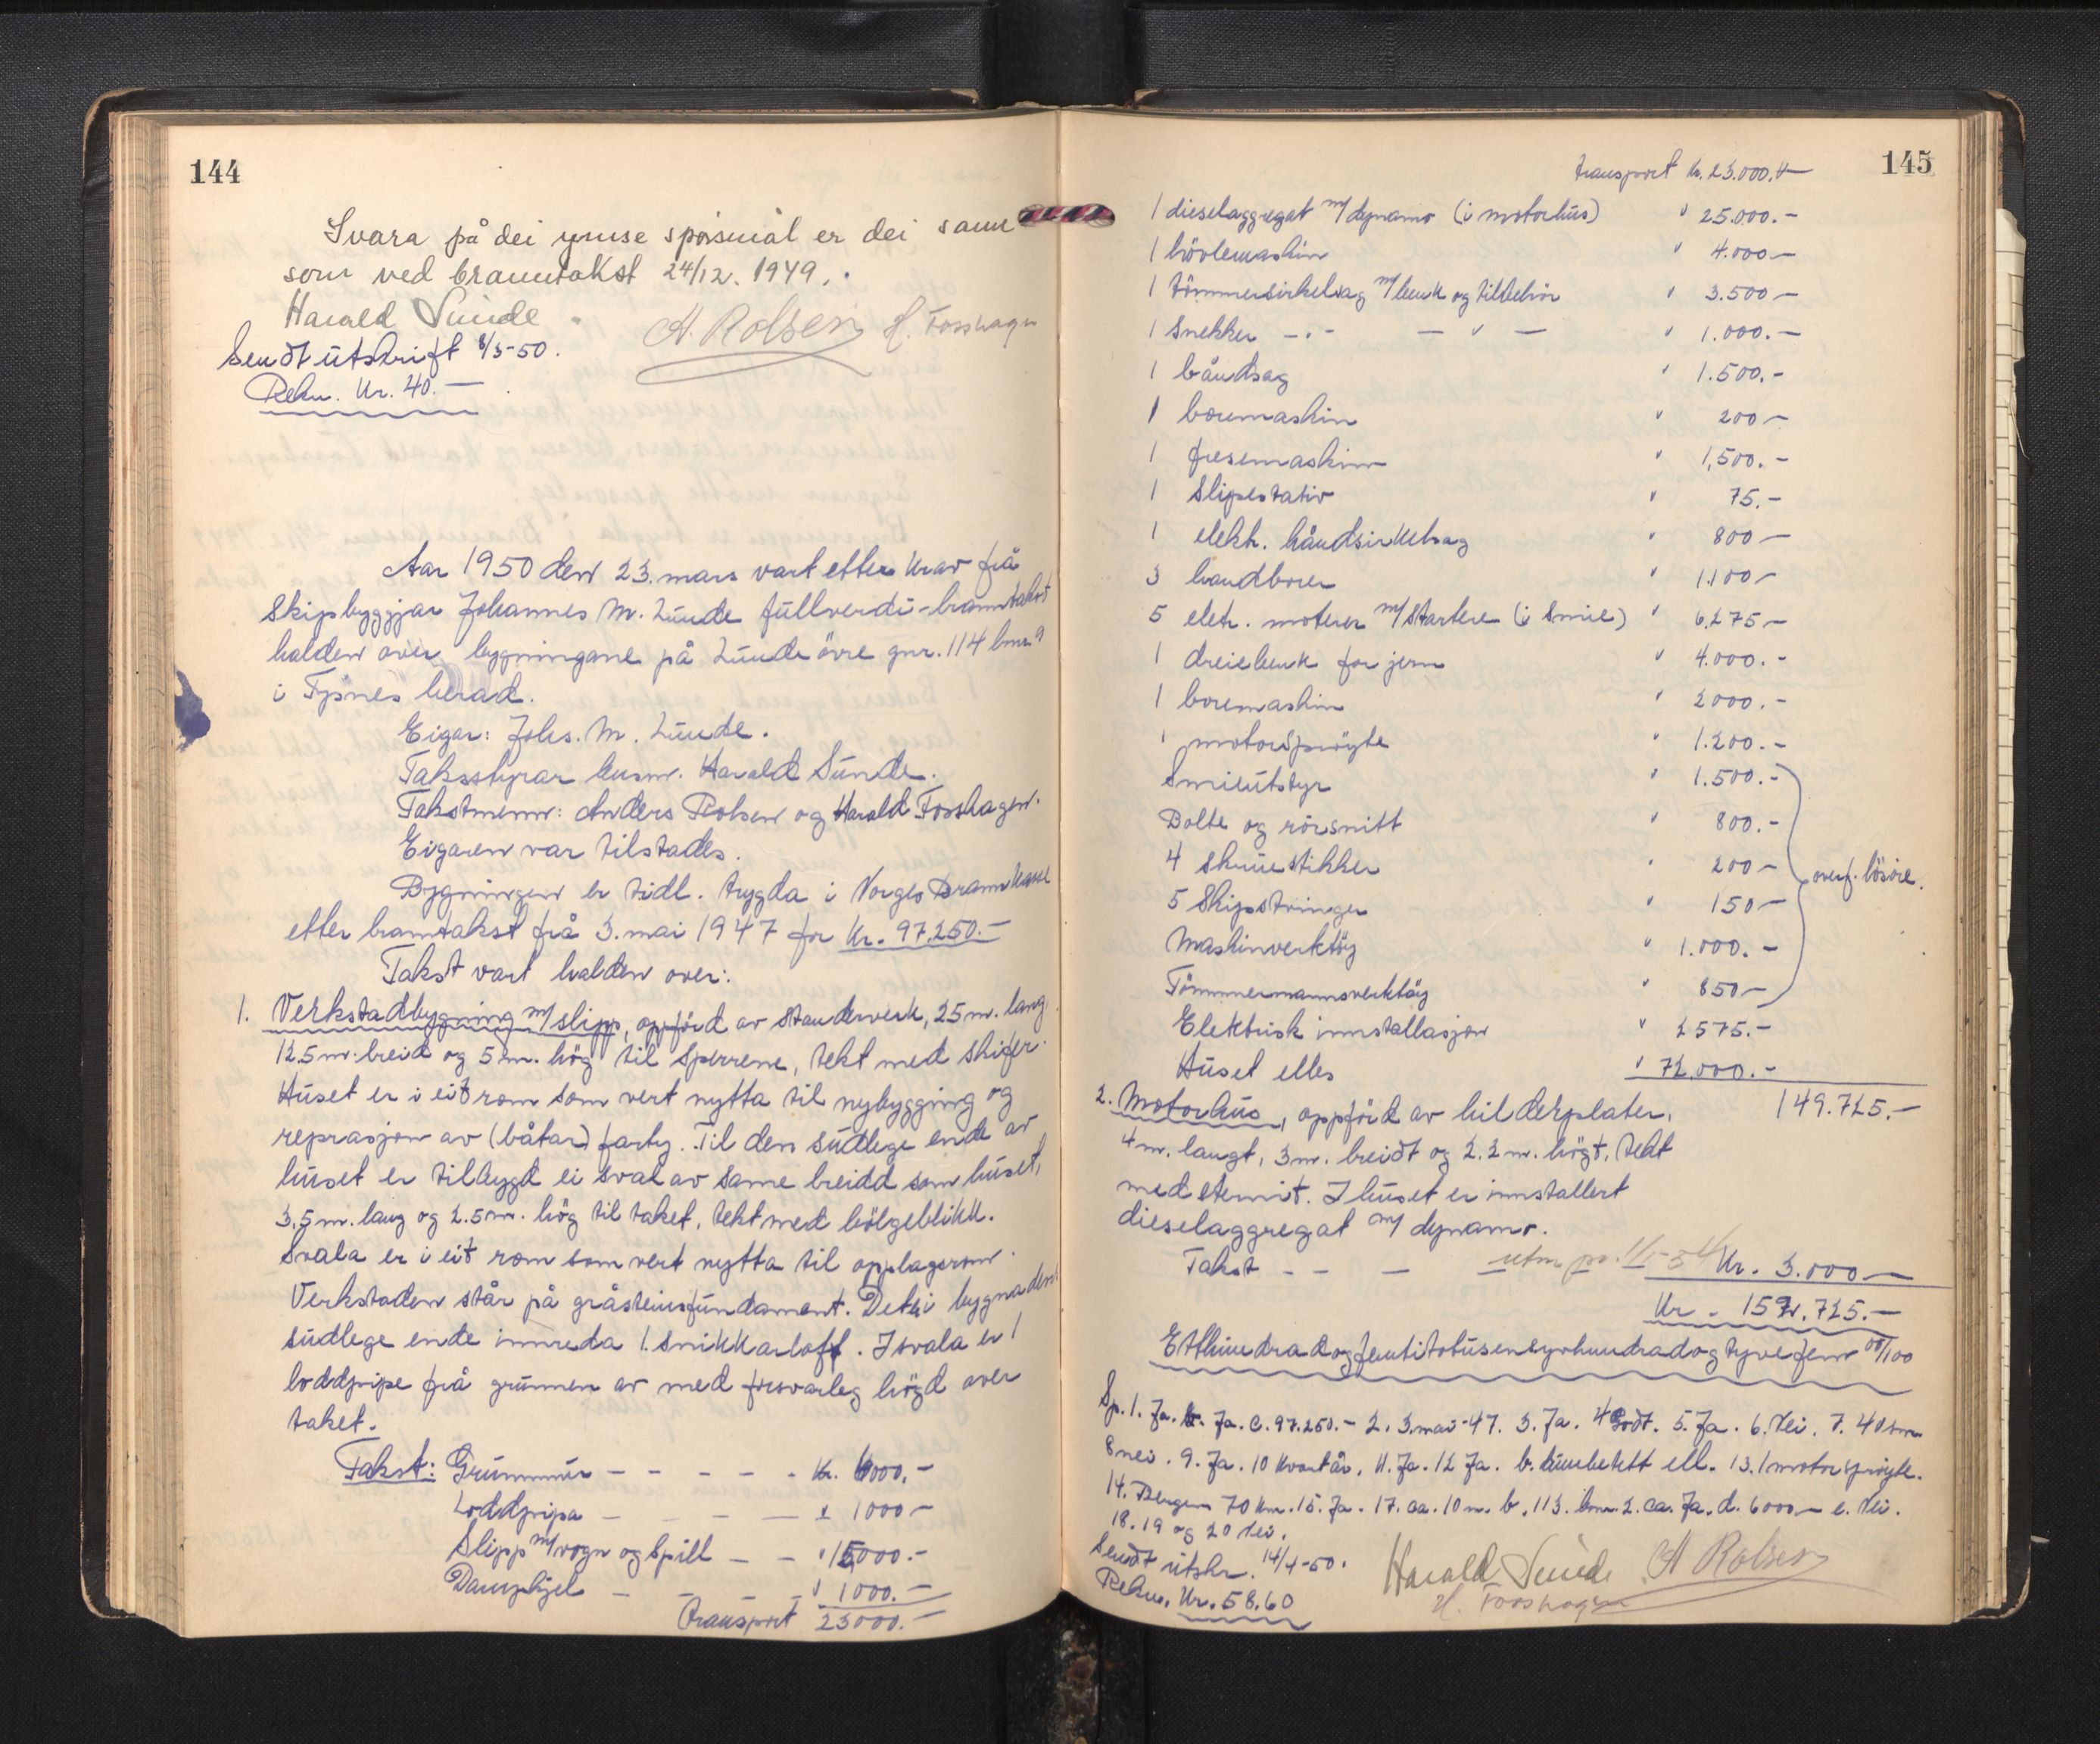 144
Svara på dei ymse spörsmål er dei same
som ved branntakst 24/12. 1949.
Harald Sunde A. Rolsen H. Fosshagen
Sendt utskrift 8/5-50.
Rekn. Kr. 40.—
Aar 1950 den 23. mars vart etter krav frå
skipsbyggjar Johannes M. Lunde fullverdi-branntakst
halden over bygningane på Lunde övre gnr. 114 bnr. 9
i Tysnes herad.
Eigar: Johs. M. Lunde.
Takststyrar lensm. Harald Sunde.
Takstmenn: Anders Rolsen og Harald Fosshagen.
Eigaren var tilstades.
Bygningen er tidl. trygda i Norges Brannkasse
etter branntakst frå 3. mai 1947 for Kr. 97.250.—
Takst vart halden over:
1. Verkstadbygning m/slipp, oppförd av standerverk, 25 m. lang
12.5 m. breid og 5 m. hög til sperrene, tekt med skifer.
Huset er i eit rom som vert nytta til nybygging og
reprasjon av (båtar) farty. Til den sudlege ende av
huset er tilbygd ei sval av same breidd som huset,
3,5 m. lang og 2.5 m. hög til taket, tekt med bölgeblikk.
Svala er i eit rom som vert nytta til opplagsrom.
Verkstaden står på gråsteinsfundament. Det i bygnadens
sudlege ende innreda 1. snikkarloft. I svala er 1
loddpipe frå grunnen av med forsvarleg högd over
taket.
Takst: Grunnmur – – – – - Kr. 6000.–
Loddpipa – – – – " 1000–
Slipp m/vogn og spill – – " 15000.–
Dampkjel – – – – " 1000.–
Transport 23000.–
145
Transport Kr. 23.000.–
1 dieselaggregat m/dynamo (i motorhus) " 25.000.–
1 hövlemaskin " 4.000–
1 tömmersirkelsag m/benk og tilbehör " 3.500–
1 Snekker –"– – " – " 1.000.–
1 båndsag " 1.500.–
1 boremaskin " 200–
1 fresemaskin " 1,500.–
1 slipestativ " 75.–
1 elektr. håndsirkelsag " 800–
3 handborer " 1.100–
5 eletr. moterer m/startere (i smie) " 6.275–
1 dreiebenk for jern " 4.000.–
1 boremaskin " 2000.–
1 motorspröyte " 1.200.–
Smieutstyr " 1.500.–
Bolte og rörsnitt " 800.–
4 skruestikker " 200–
overf. lösöre.
5 Skipstvinger " 150–
Maskinverktöy " 1.000.–
Tömmermannsverktöy " 850–
Elektrisk innstallasjon " 2575.–
Huset elles " 72.000.–
149.725.–
2. Motorhus, oppförd av bilderplater,
4 m. langt, 3 m. breidt og 2.2 m. högt, tekt
med eternit. I huset er innstallert
dieselaggregat m/ dynamo.
Takst – – – Kr. 3.000–
Kr. 152.725.–
Etthundradogfemtitotusensyvhundradogtyvefem 00/100
Sp. 1. Ja. b. Ja. c. 97.250.– 2. 3. mai -47. 3. Ja. 4 Godt. 5. Ja. 6. Nei. 7. 40 sm
8 nei. 9. Ja. 10 Kvart år. 11. Ja. 12 Ja. b. ell. 13. 1 motorspröyte.
14. Bergen 70 km. 15. Ja. 17. ca. 10 m. b. 113. bnr. 2. ca. Ja. d. 6000– e. Nei.
18. 19 og 20 Nei.
Sendt utskr. 14/4-50.
Harald Sunde A Rolsen
Rekn. Kr. 58.60
H. Fosshagen